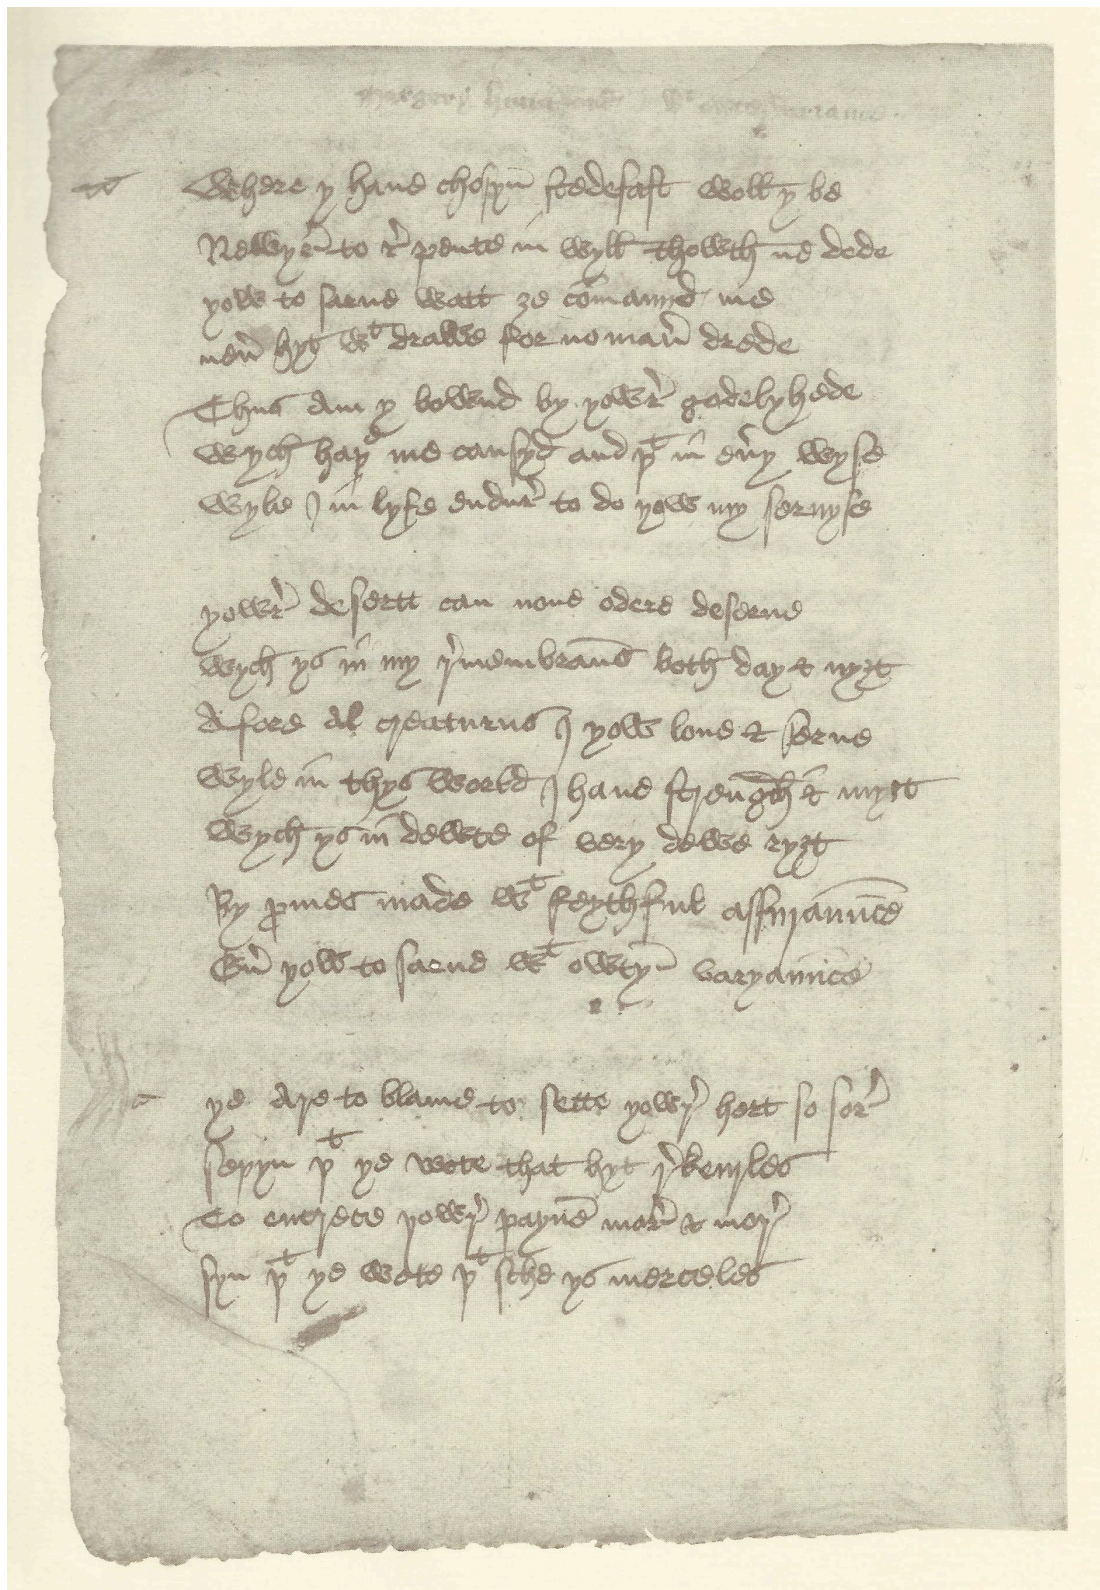 Where y haue chosyn stedefast woll y be
Newyr̃ to r̃pente in wyll thowth ne dede
yow to sarue watt ȝe cōmannd me
neũ hyt wᵗ drawe for no man̄ drede
Thus am y bownd by yowr̃ godelyhede
wych hath me causyd and þᵗ in eũy wyse
wyle I in lyfe endur̃ to do yow my seruyse

yowr̃ desertt can none odere deserue
wych ys in my r̃membrans both day & nyȝt
Afore al creaturus I yow loue & serue
wyle in thys world I haue strength & myȝt
wych ys in dewte of very dewe ryȝt
By promes made wᵗ feythful assuraunce
Eũ yow to sarue wᵗ owtyn̄ varyaunce

ye Are to blame to sette yowr̃ hert so sor̃
seþyn þᵗ ye wote that hyt r̃keuyrles
To encrece yowr̃ payne mor̃ & mor̃
syn þᵗ ye wote þᵗ sche ys merceles